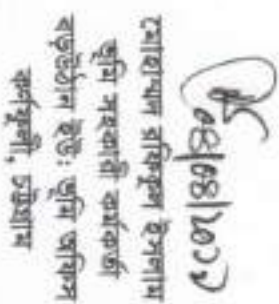 মোহাম্মদ রফিকুল ইসলাম
ভূমি সহকারী কর্মকর্তা
বড়উঠান ইউঃ ভূমি অফিস
কর্ণফুলী, চট্টগ্রাম